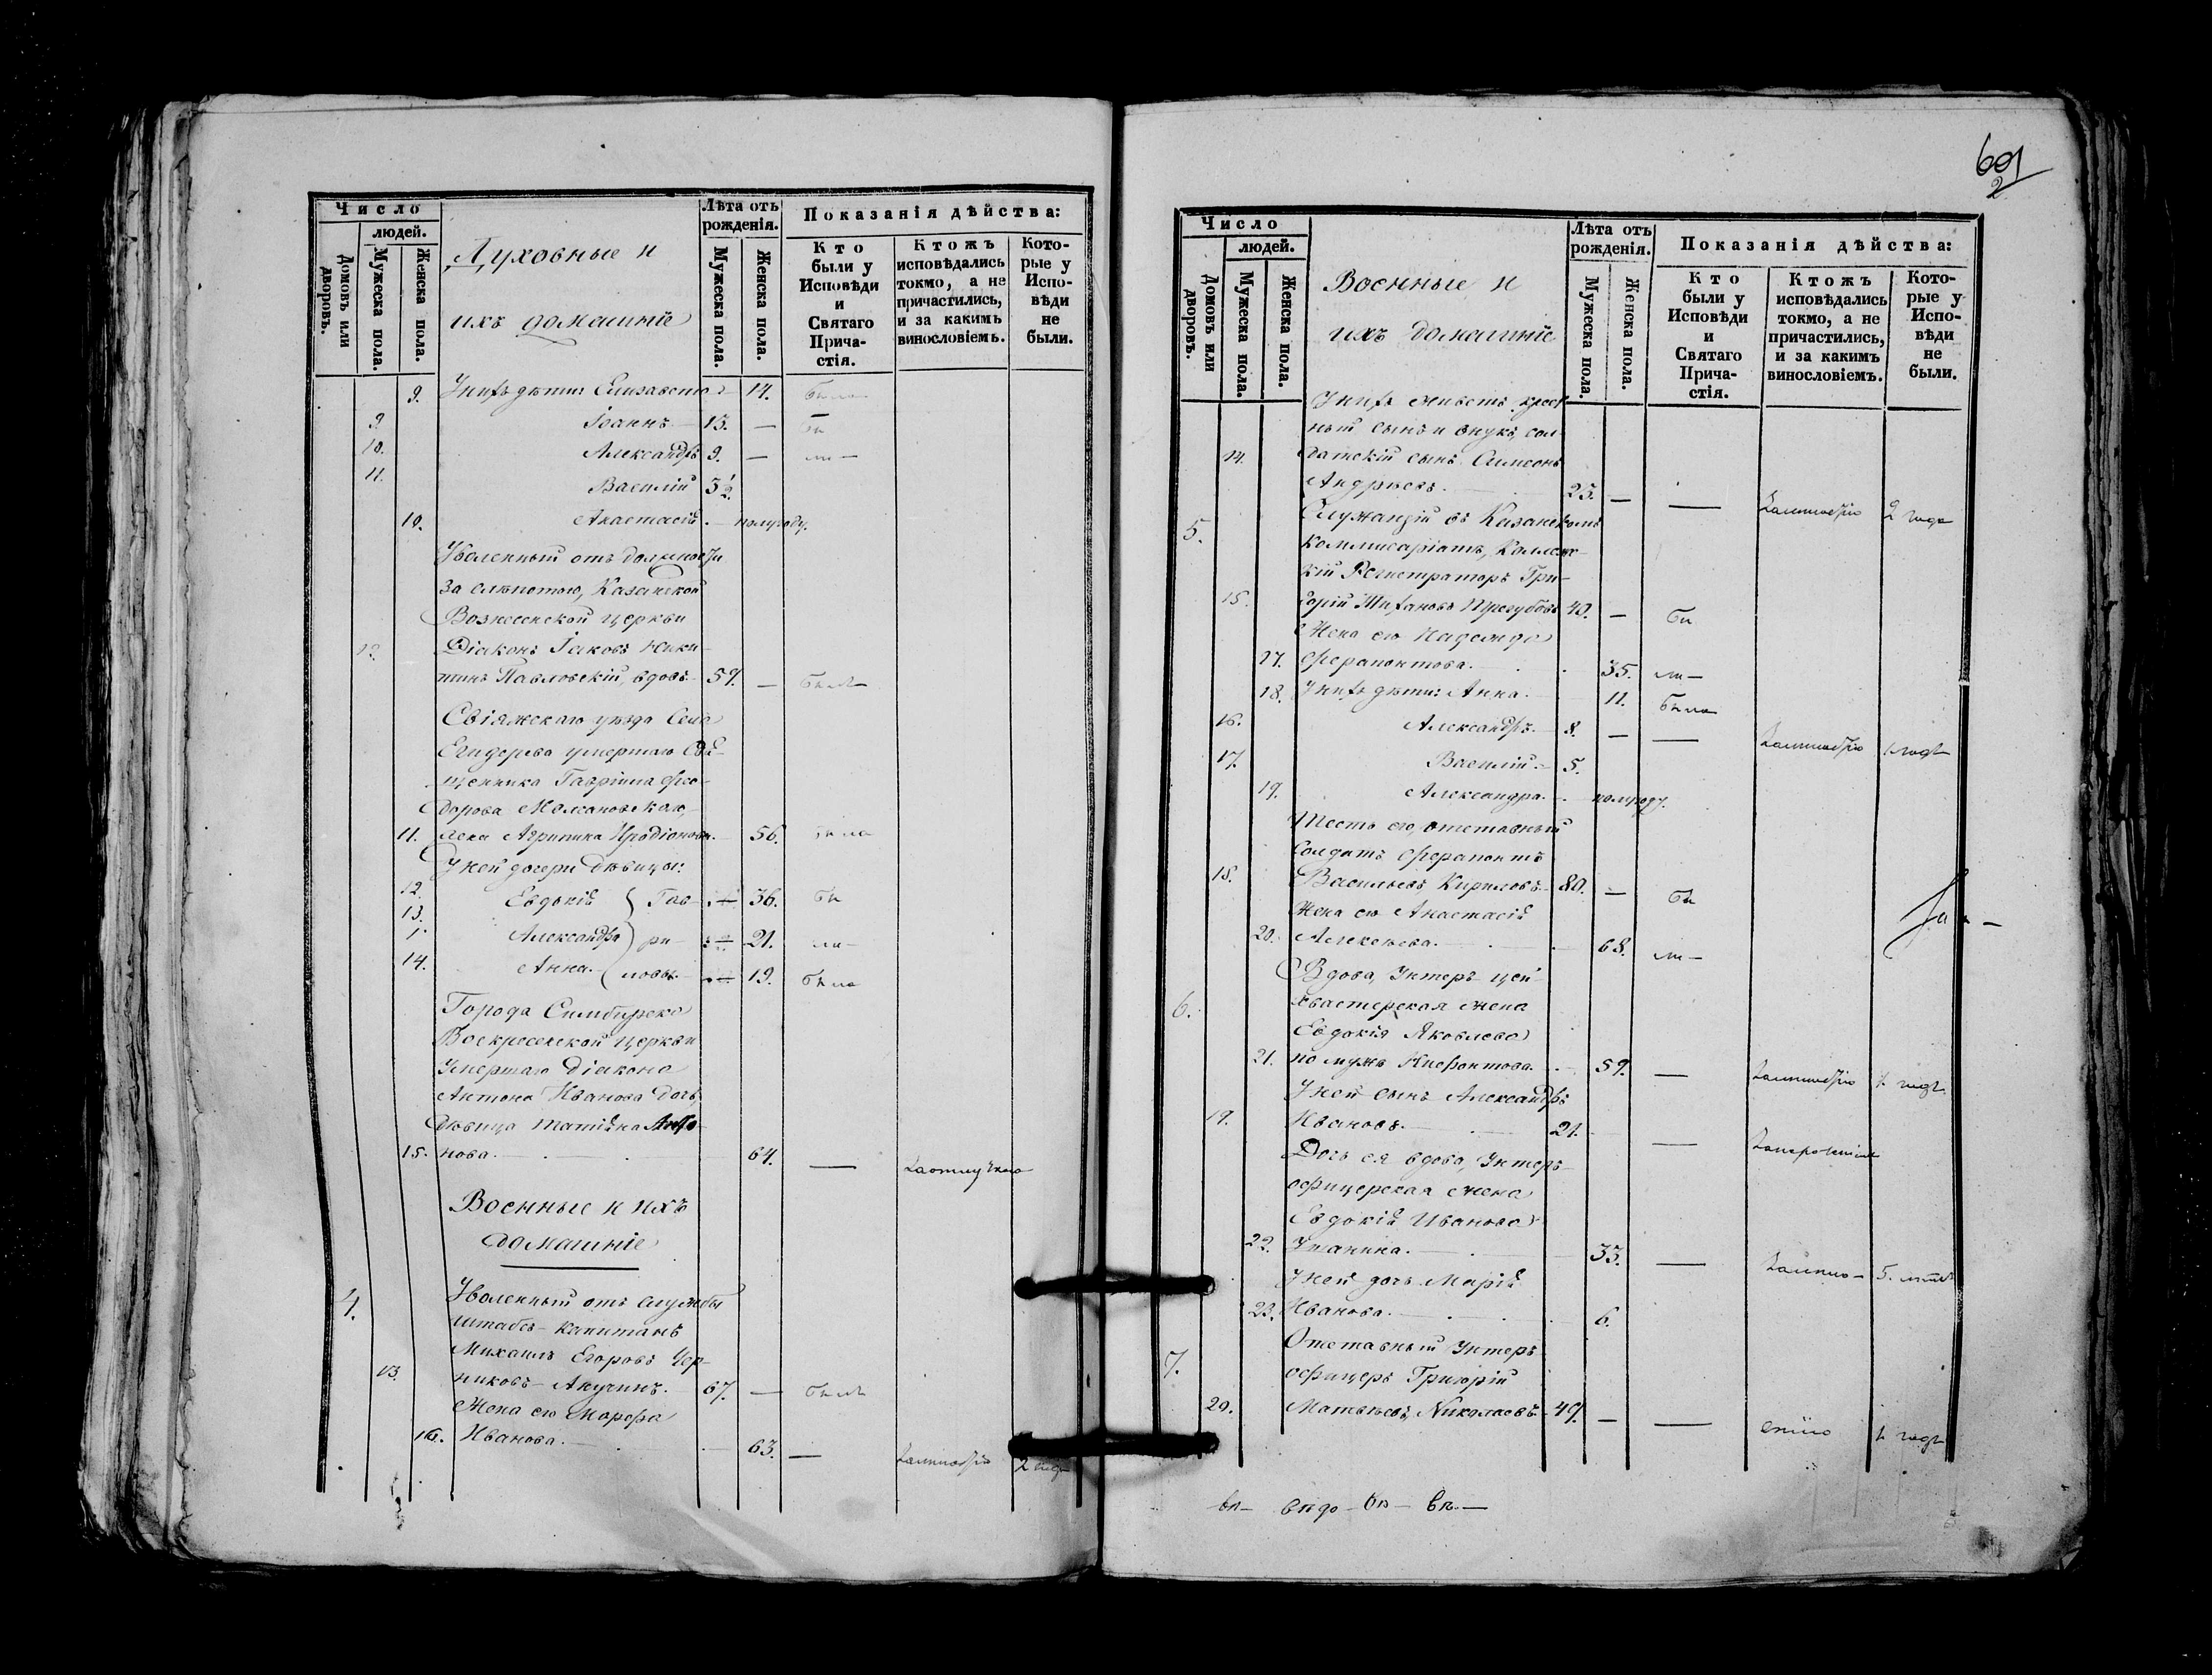 Число
людей.
Домовъ или дворовъ.
Мужеска пола.
Женска пола.
Духовные и
ихъ домашніе
Лѣта отъ рожденія.
Мужеска пола.
Женска пола.
Показанія дѣйства:
Кто были у Исповѣди и Святаго Прича-стія.
Ктожъ исповѣдались токмо, а не причастились, и за какимъ винословіемъ.
Кото-рые у Испо-вѣди не были.
9. У нихъ дѣти: Елисавета — 14. была
9. Іоаннъ — 13. — бы
10. Александръ 9. — ли —
11. Василій 3½.
10. Анастасія . — полугоду.
Уволенный отъ должности
за слѣпотою, Казанской
Вознесенской церкви
12. Діаконъ Іаковъ Ники-
тинъ Павловскій, вдовъ — 59. — былъ
Свіяжскаго уѣзда Села
умершаго Свя-
щенника Гавріила Ѳео-
дорова
11. жена Агрипина Иродіонова. — 56. была
У ней дочери дѣвицы:
12. Евдокія } Гав- — 36. бы
13. Александра } ри- — 21. ли —
14. Анна. — ловы — 19. была
Города Симбирска
Воскресенской церкви
Умершаго Діакона
Антона Иванова дочь,
дѣвица Татіана Анто-
15. нова. — 64. — за отлучкою
Военные и ихъ
домашніе
4. Уволенный отъ службы
штабсъ-капитанъ
Михаилъ Егоровъ Чер-
13. никовъ-Анучинъ. 67. — былъ
Жена его Марфа
16. Иванова. — 63. — 2 года
601
2
Число
людей.
Домовъ или дворовъ.
Мужеска пола.
Женска пола.
Военные и
ихъ домашніе
Лѣта отъ рожденія.
Мужеска пола.
Женска пола.
Показанія дѣйства:
Кто были у Исповѣди и Святаго Прича-стія.
Ктожъ исповѣдались токмо, а не причастились, и за какимъ винословіемъ.
Кото-рые у Испо-вѣди не были.
У нихъ живетъ крест-
ный сынъ и внукъ, сол-
14. датскій сынъ Симеонъ
Андреевъ. — 25. — — 2 года
5. Служащій въ Казанскомъ
коммисаріатѣ, Коллежс-
кій Регистраторъ Гри-
15. горій 40. — бы
Жена его Надежда
17. Ферапонтова. — 35. ли —
18. У нихъ дѣти: Анна. — 11. была
16. Александръ. — 8. — — 1 годъ
17. Василій. — 5.
19. Александра. — полугоду.
Тесть его, отставный
солдатъ Ферапонтъ
18. Васильевъ Кириловъ — 80. — бы
Жена его Анастасія
20. Алексѣева. — 68. ли —
6. Вдова, Унтеръ-цей-
хвастерская жена
Евдокія Яковлева
21. по мужѣ Ниѳонтова. — 59. — 1 годъ
У ней сынъ Александръ
19. Ивановъ. — 21. —
Дочь ея вдова, Унтеръ-
офицерская жена
Евдокія Иванова
22. 33. — 5. лѣтъ
У ней дочь Марія
23. Иванова. — 6.
7. Отставный Унтеръ-
офицеръ Григорій
20. Матвѣевъ Николаевъ — 49. — — 1 годъ